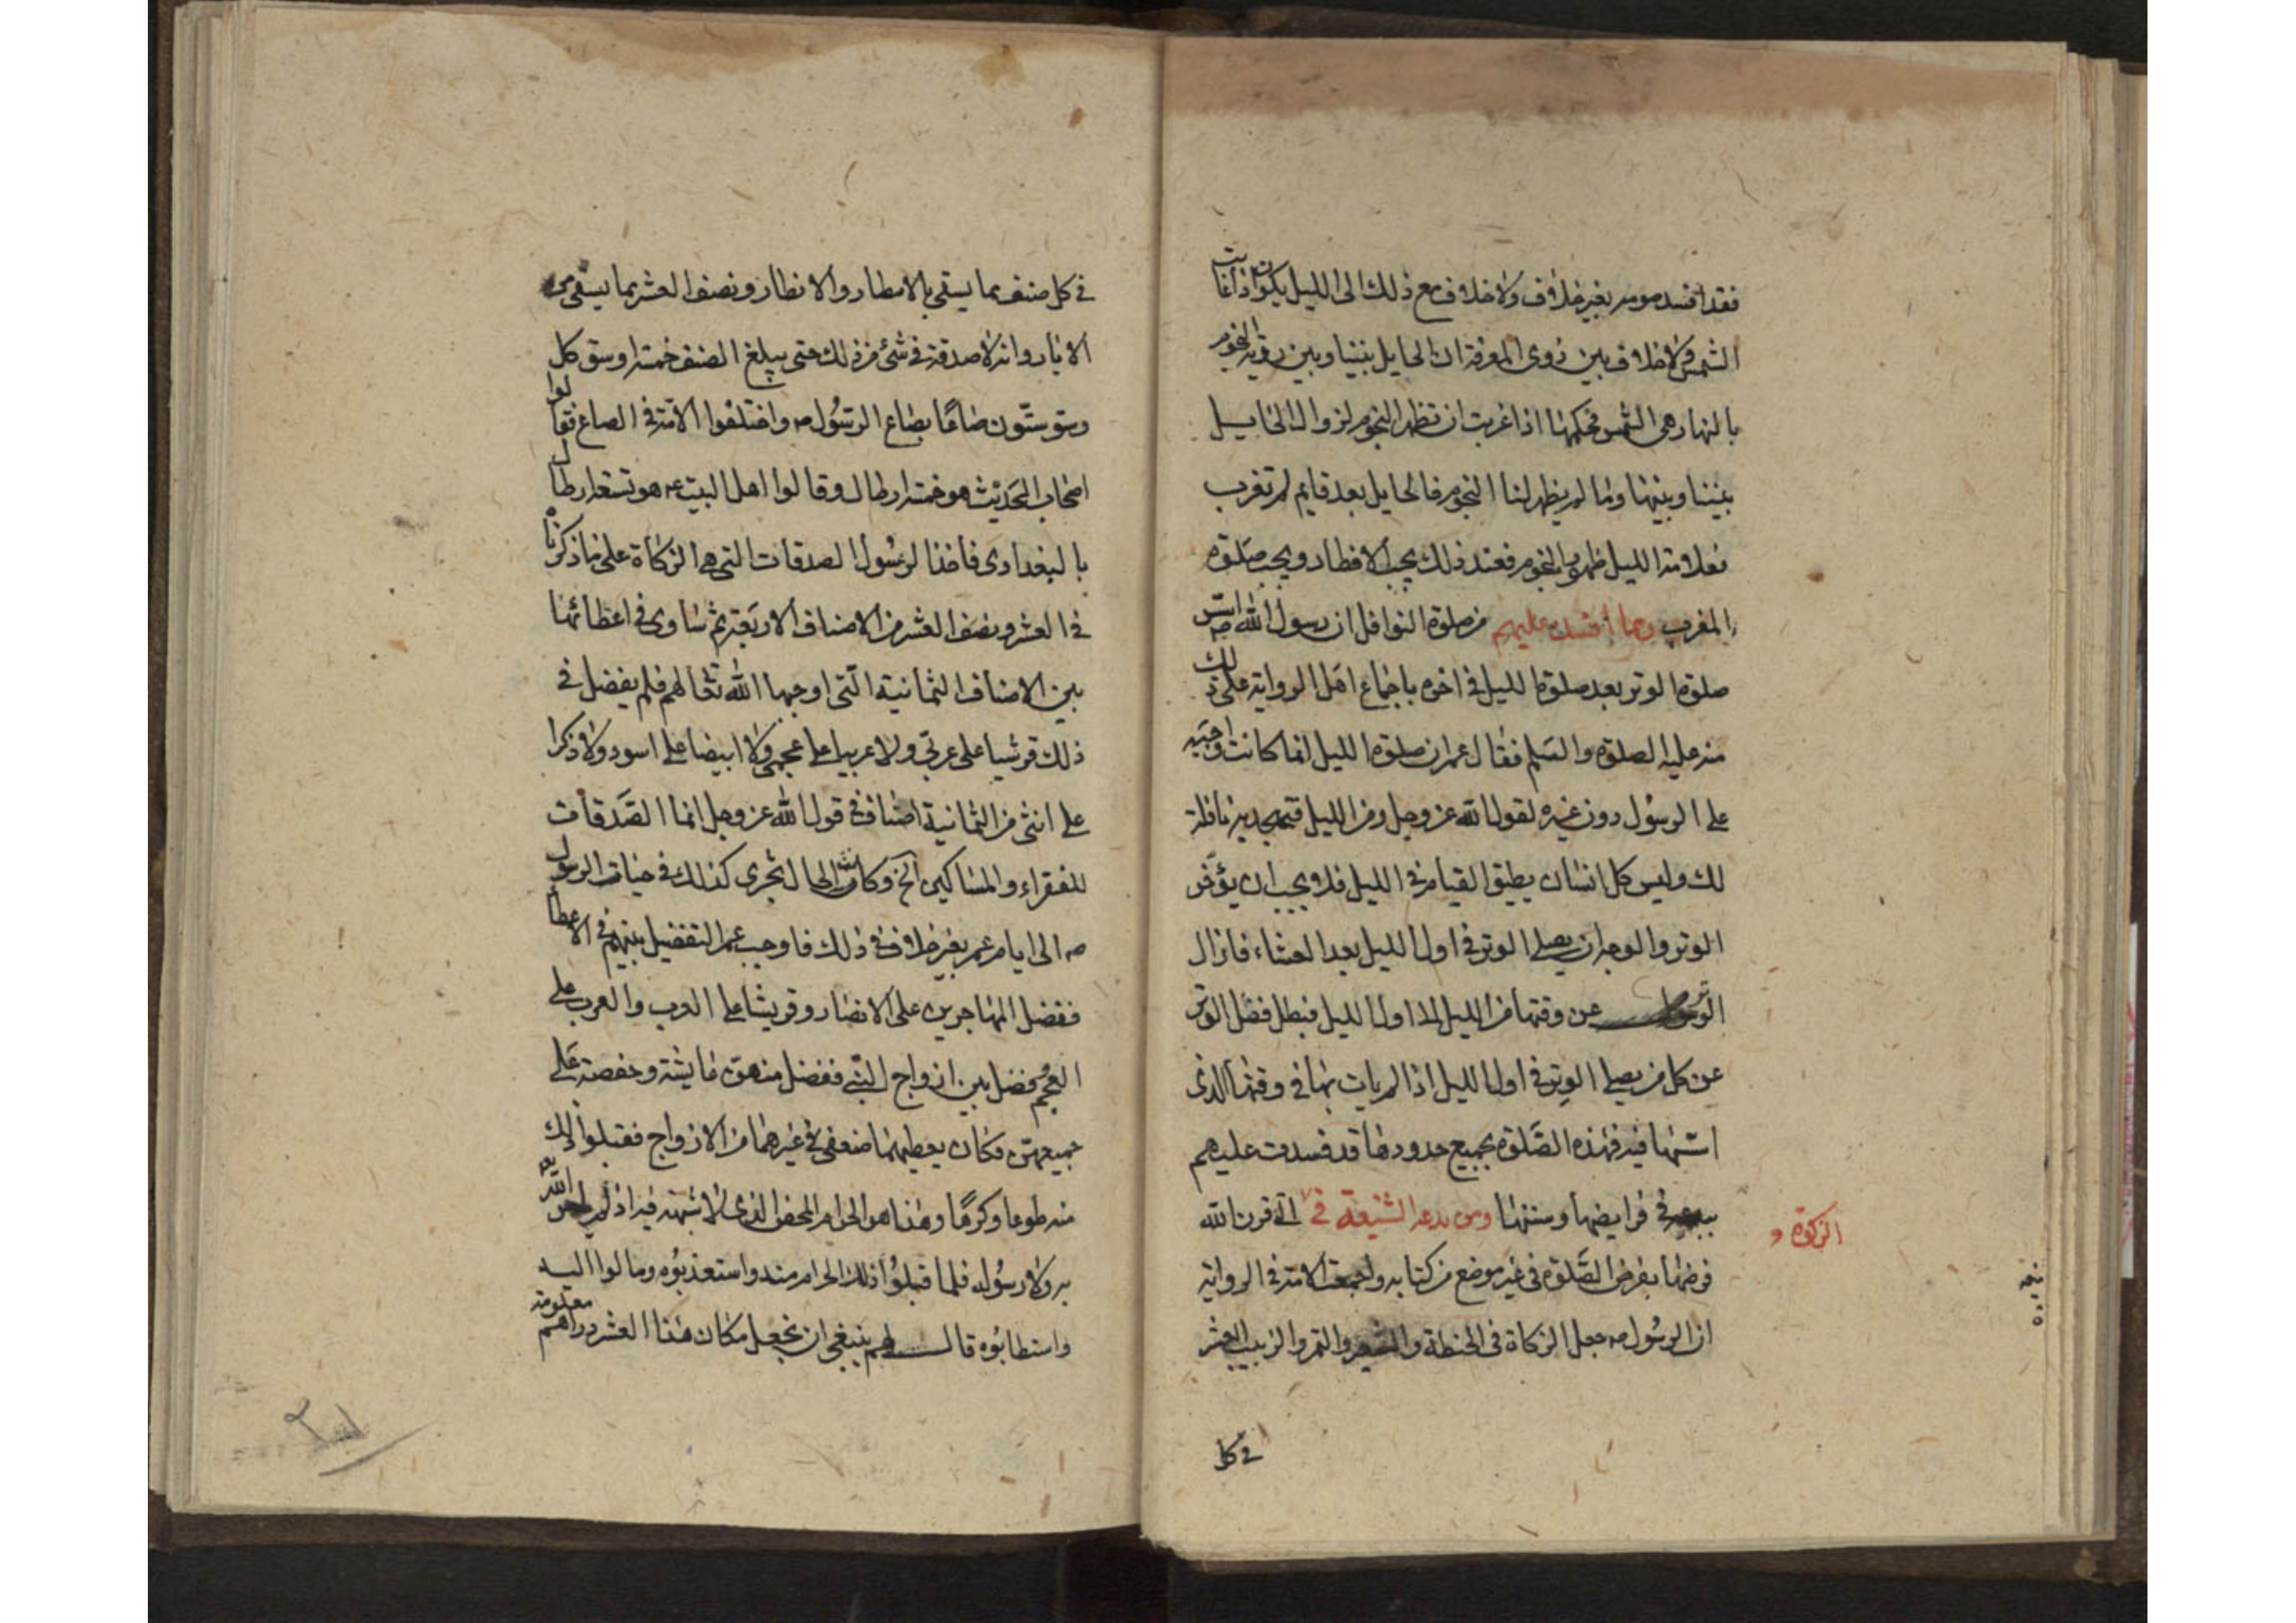 فقد افسد صومه بغير خلاف ولا خلاف مع ذلك الى الليل يكون اذا غابت
الشمس ولا خلاف بين ذوى المعرفة ان الحايل بيننا وبين رؤية النجوم
بالنهار هى الشمس فحكمها اذا غربت ان تظهر النجوم لزوال الحايل
بيننا وبينها وما لم يظهر لنا النجوم فالحايل بعد قايم لم تغرب
فعلامة الليل ظهور النجوم فعند ذلك يجب الافطار ويجب صلوة
المغرب ومما افسده عليهم من صلوة النوافل ان رسول الله ص اثبت
صلوة الوتر بعد صلوة الليل فى اخره باجماع اهل الرواية على ذلك
منه عليه الصلوة والسلم فقال عمر ان صلوة الليل انما كانت واجبة
على الرسول دون غيره لقول الله عز وجل ومن الليل فتهجد به نافلة
لك وليس كل انسان يطيق القيام فى الليل فلا يجب ان يؤخر
الوتر والوجه ان يصلى الوتر فى اول الليل بعد العشاء فازال
الوتر عن وقتها من الليل الا اول الليل فبطل فضل الوتر
عن كل من يصلى الوتر فى اول الليل اذا لم يات بها فى وقتها الذى
اسنها فيه فهذه الصلوة بجميع حدودها قد فسدت عليهم
ببدعه فى فرايضها وسننها ومن بدعه الشنيعة فى الزكوة و التى قرن الله
فرضها بفرض الصلوة فى غير موضع من كتابه واجمعت الامة فى الرواية
ان الرسول ص جعل الزكاة فى الحنطة والشعير والتمر والزبيب العشر
فى كل
فى كل صنف مما يسقى بالامطار والانطار ونصف العشر مما يسقى من
الابار وانه لا صدقة فى شئ من ذلك حتى يبلغ الصنف خمسة اوسق كل
وسق ستون صاعا بصاع الرسول ص واختلفوا الامة فى الصاع فقالوا
اصحاب الحديث هو خمسة ارطال وقالوا اهل البيت ع هو تسعة ارطال
بالبغدادى فاخذ الرسول الصدقات التى هى الزكاة على ما ذكرناه
فى العشر ونصف العشر من الاصناف الاربعة ثم ساوى فى اعطائها
بين الاصناف الثمانية التى اوجبها الله تعالى لهم فلم يفضل فى
ذلك قرشيا على عربى ولا عربيا على عجمى ولا ابيضا على اسود ولا ذكرا
على انثى من الثمانية اصناف فى قول الله عز وجل انما الصدقات
للفقراء والمساكين الخ وكانت الحال تجرى كذلك فى حيات الرسول
ص الى ايام عمر بغير خلاف فى ذلك فاوجب عمر التفضيل بينهم فى الاعطا
ففضل المهاجرين على الانصار وقريشا على العرب والعرب على
العجم وفضل بين ازواج النبى ففضل منهن عايشة وحفصة على
جميعهن فكان يعطيهما ضعفى غيرهما من الازواج فقبلوا ذلك
منه طوعا وكرها وهذا هو الحرام المحض الذى لا شبهة فيه اذ لم يامر الله
به ولا رسوله فلما قبلوا ذلك الحرام منه واستعذبوه ومالوا اليه
واستطابوه قال لهم ينبغى ان نجعل مكان هذا العشر دراهم معلومة